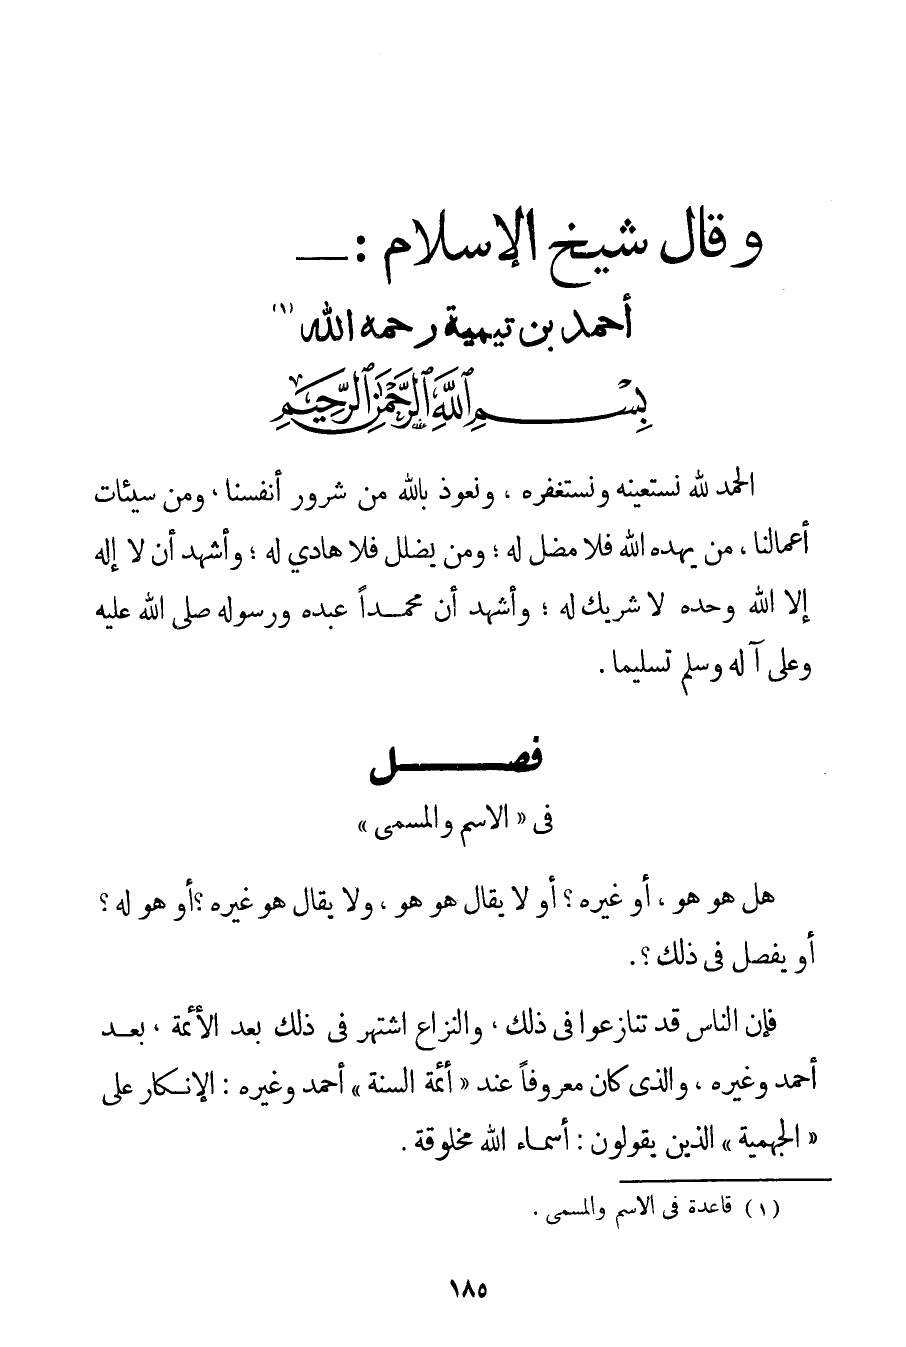 وقال شيخ الإسلام : —
أحمد بن تيمية رحمه الله (١)
بسم الله الرحمن الرحيم
الحمد لله نستعينه ونستغفره ، ونعوذ بالله من شرور أنفسنا ، ومن سيئات
أعمالنا ، من يهده الله فلا مضل له ؛ ومن يضلل فلا هادي له ؛ وأشهد أن لا إله
إلا الله وحده لا شريك له ؛ وأشهد أن محمداً عبده ورسوله صلى الله عليه
وعلى آله وسلم تسليما .
فصل
فى « الاسم والمسمى »
هل هو هو ، أو غيره ؟ أو لا يقال هو هو ، ولا يقال هو غيره ؟ أو هو له ؟
أو يفصل فى ذلك ؟ .
فإن الناس قد تنازعوا فى ذلك ، والنزاع اشتهر فى ذلك بعد الأئمة ، بعد
أحمد وغيره ، والذى كان معروفاً عند « أئمة السنة » أحمد وغيره : الإنكار على
« الجهمية » الذين يقولون : أسماء الله مخلوقة .
(١) قاعدة فى الاسم والمسمى .
١٨٥